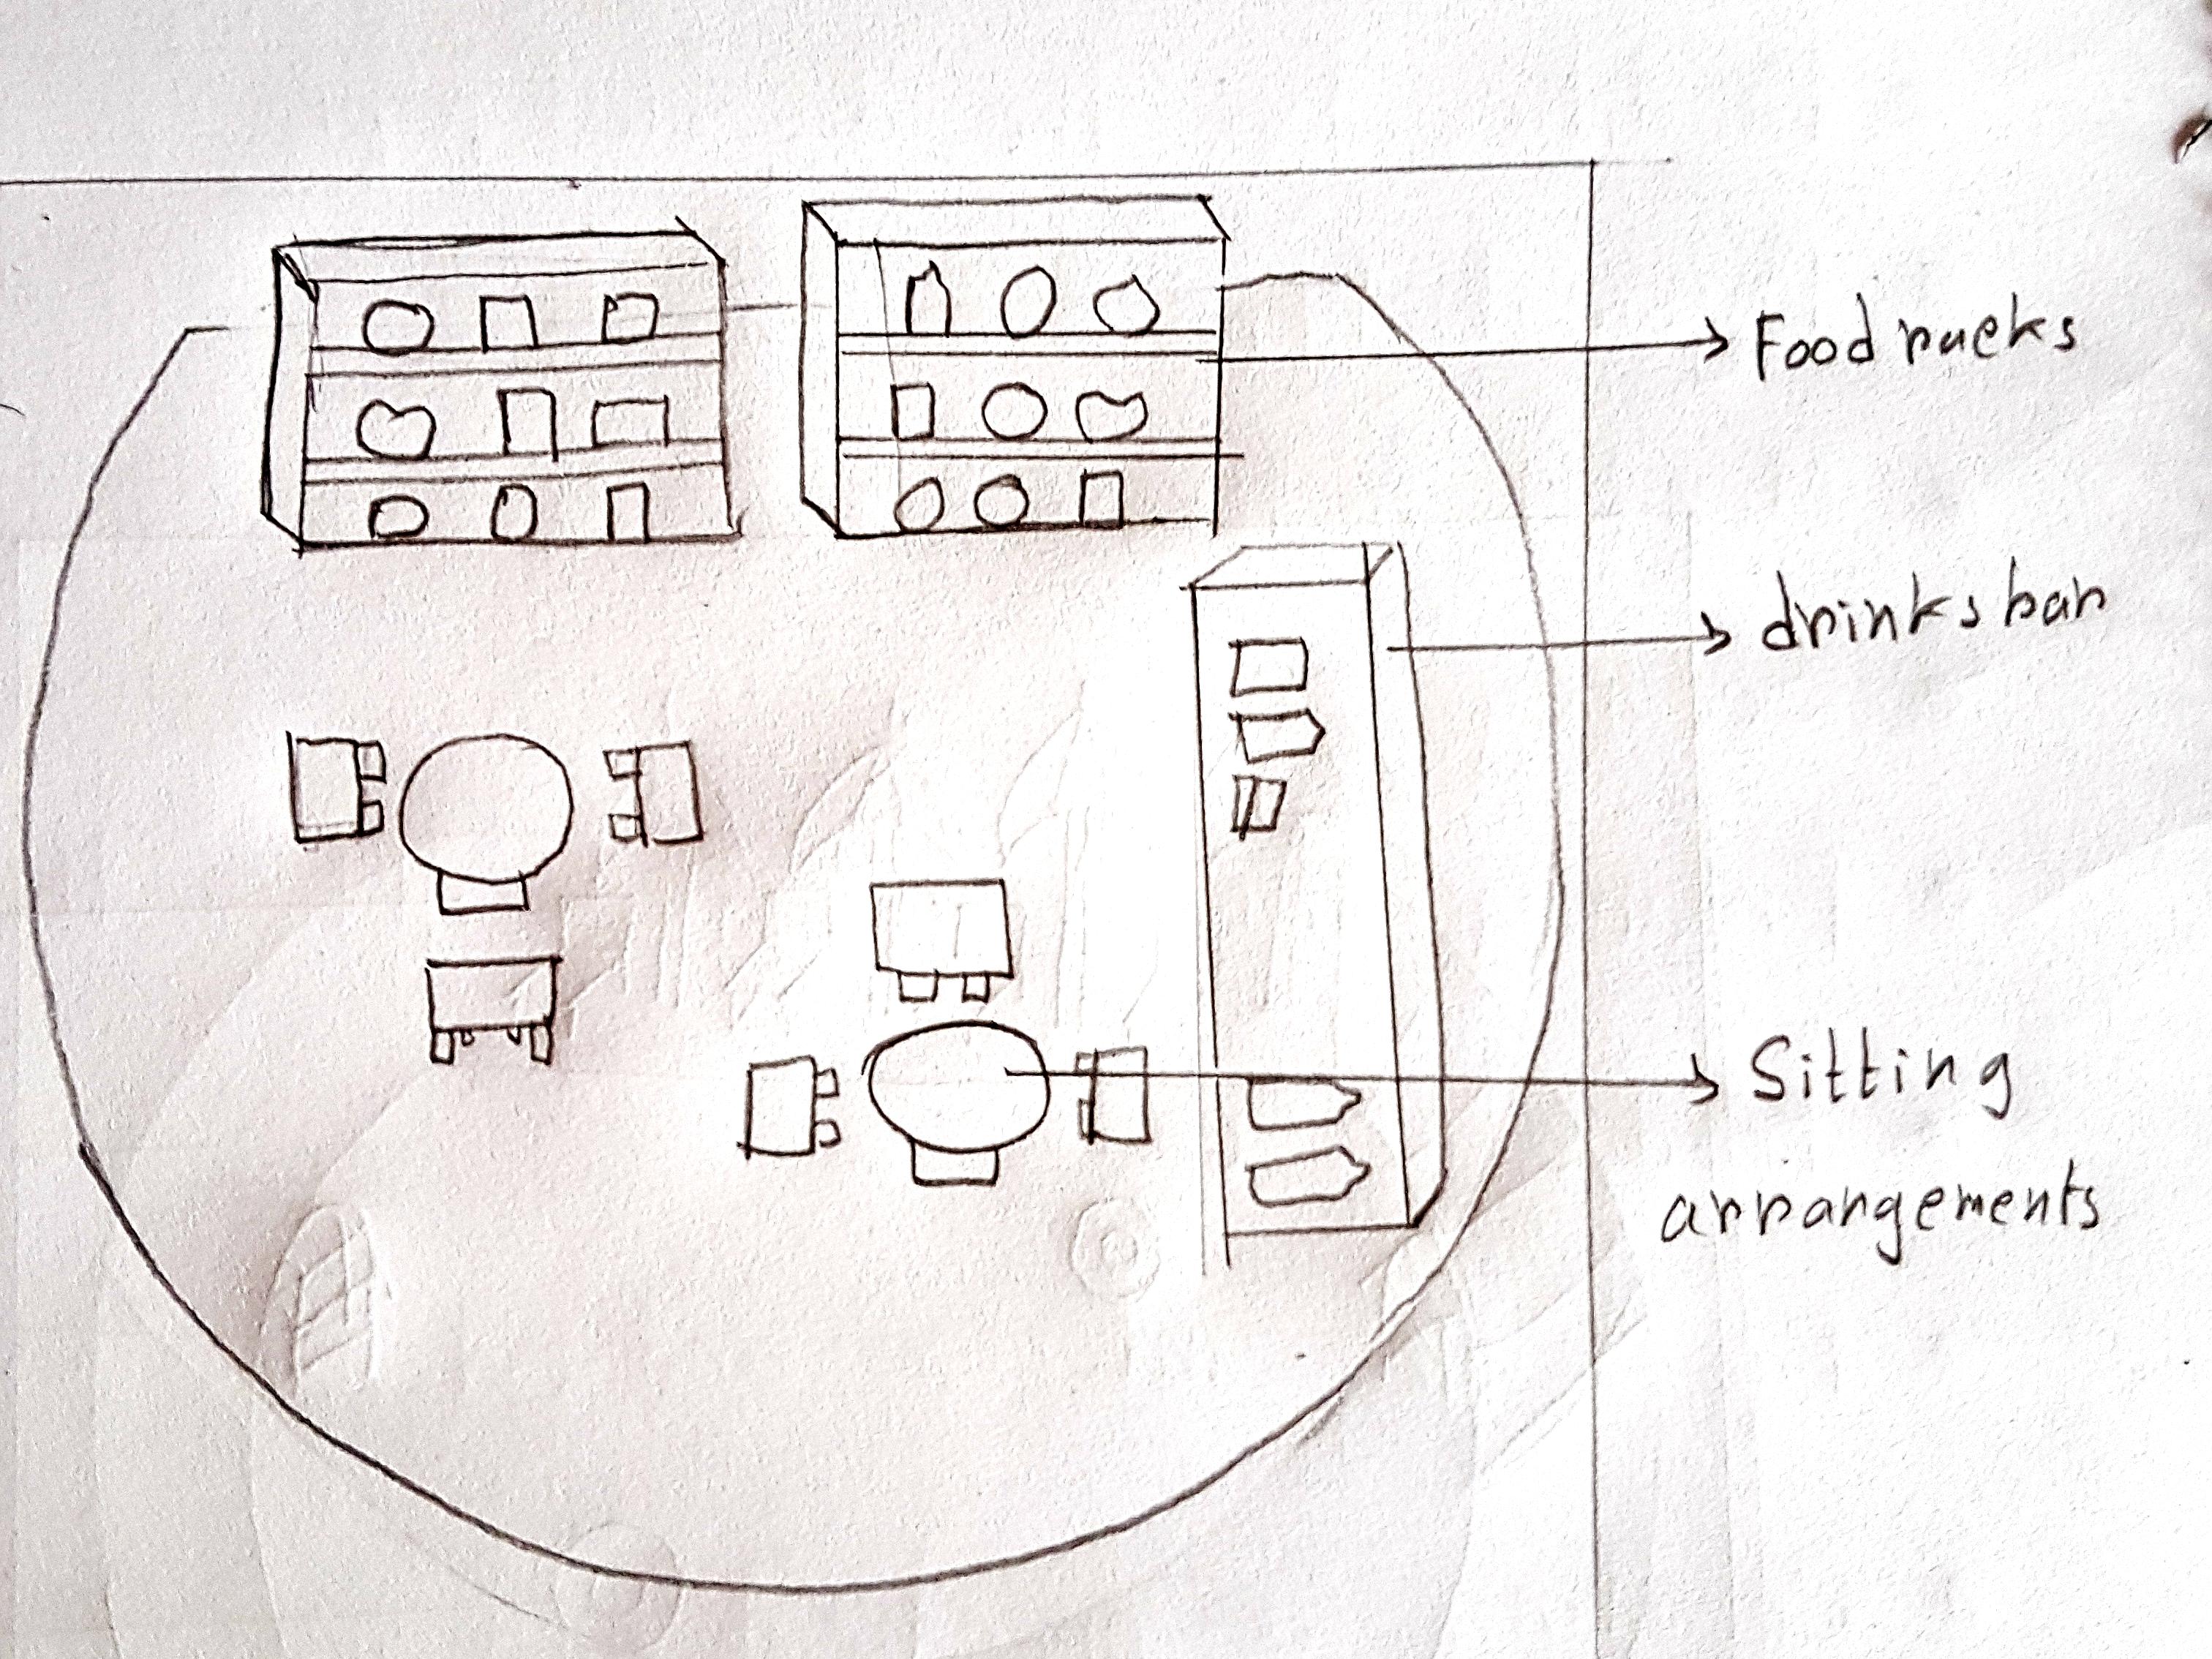 Food racks
drinks bar
Sitting
arrangements